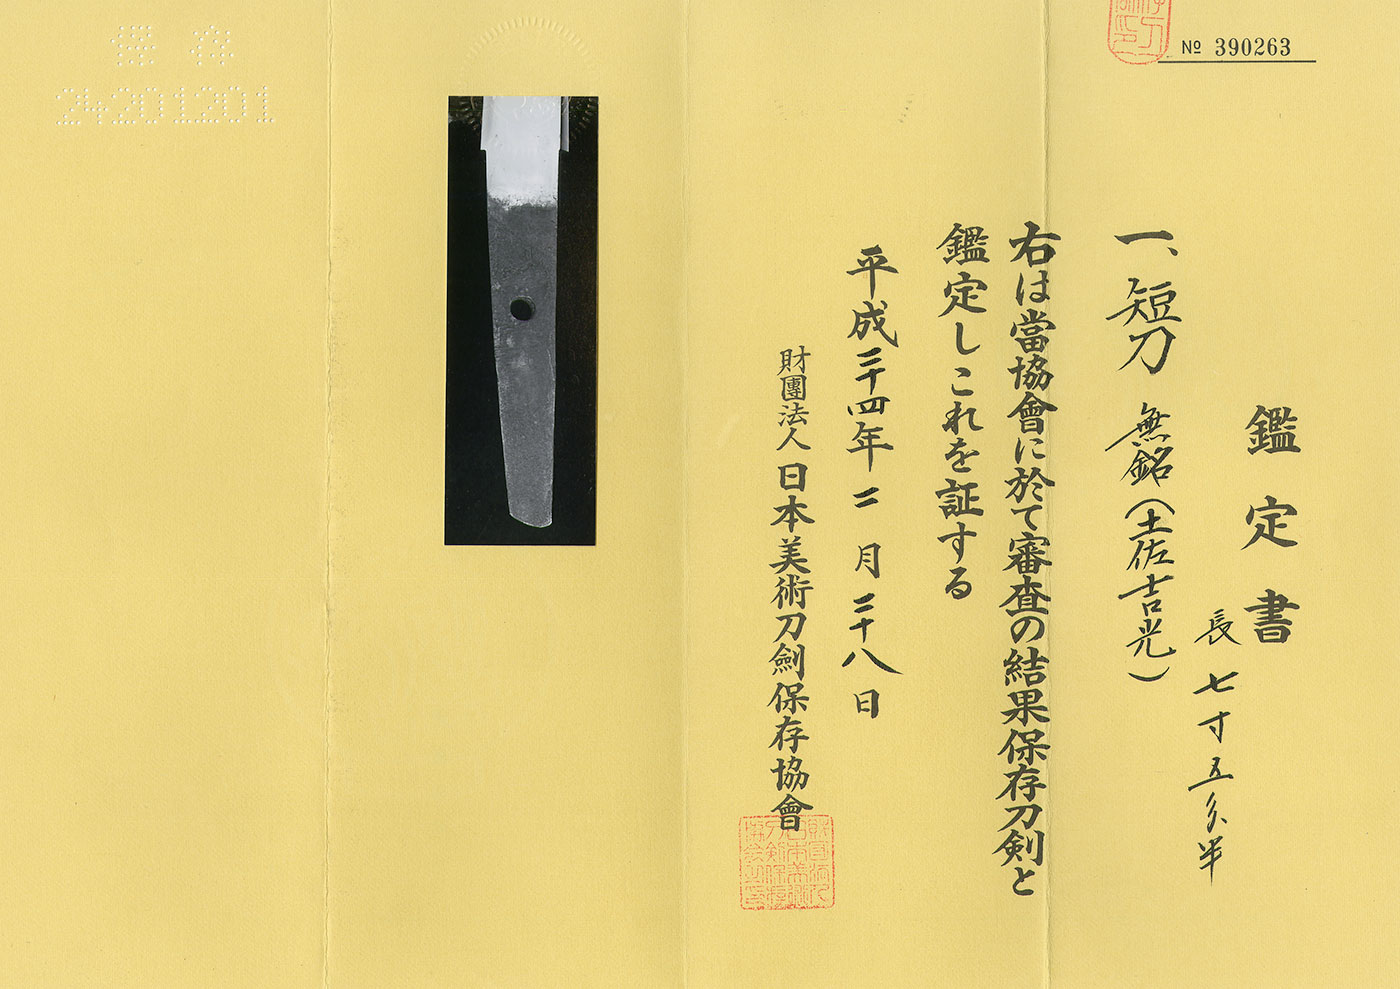 № 390263
鑑定書
長 七寸五分半
一、短刀 無銘(土佐吉光)
右は當協會に於て審査の結果保存刀剣と
鑑定しこれを証する
平成二十四年二月二十八日
財團法人日本美術刀劍保存協會
保存
24201201